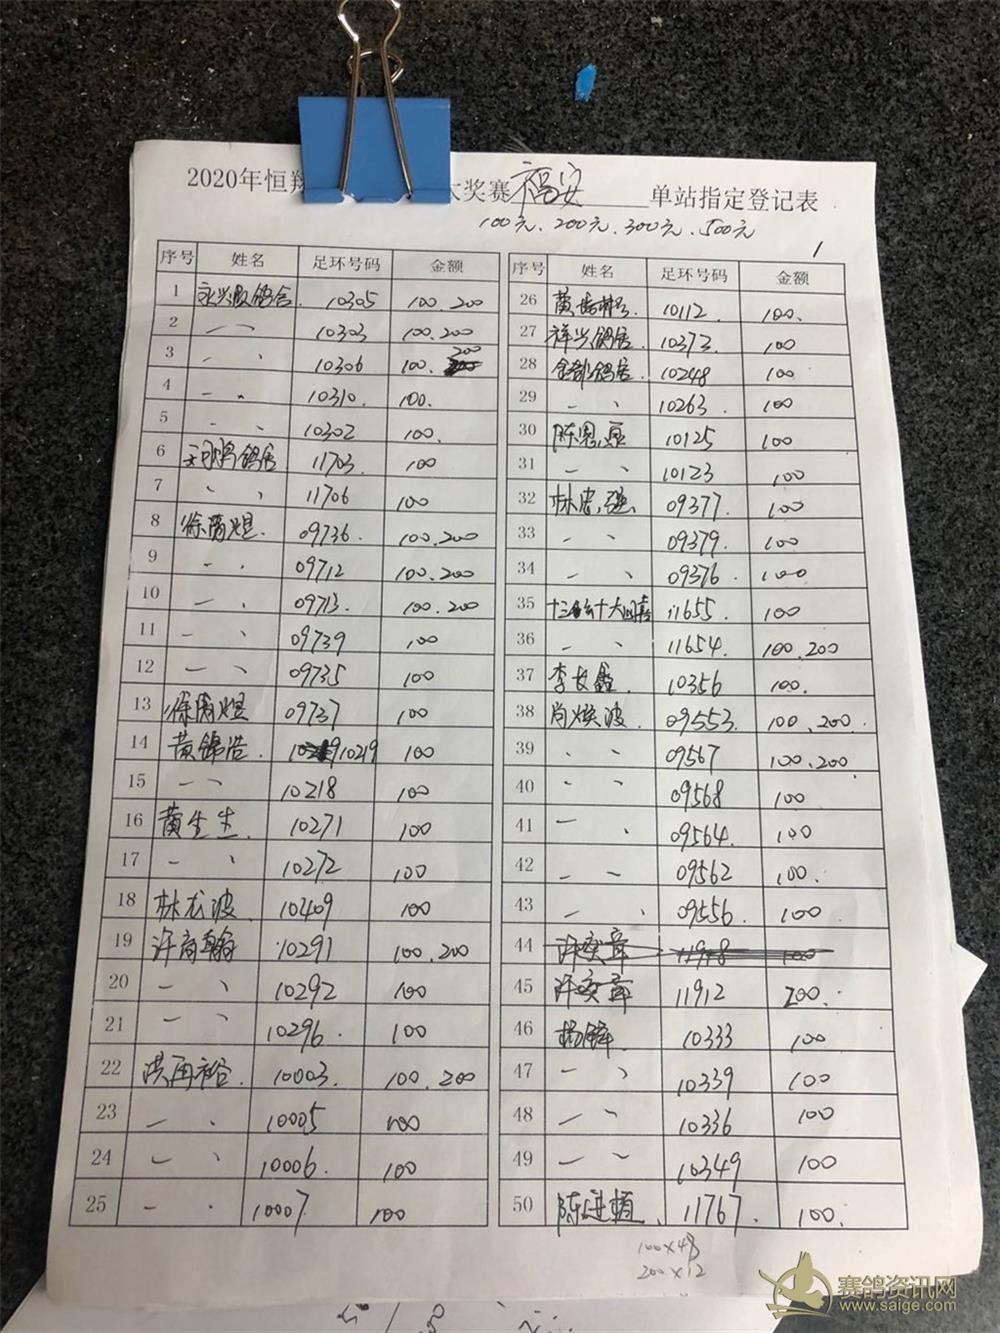 2020年恒翔 大奖赛 福安 单站指定登记表
100元、200元、300元、500元
1
序号 姓名 足环号码 金额
1 永兴 鸽舍. 10305 100.200
2 一 、 10303 100.200
3 、 、 10306 100. 200
4 一 . 10310. 100.
5 、 、 10302 100.
6 鸽舍 11703. 100
7 、 、 11706 100
8 徐 煜. 09736 100.200
9 一 、 09712 100.200
10 一 、 09713. 100.200
11 一 、 09739 100
12 一 、 09735 100
13 徐 煜 09737 100
14 黄锦浩. 10219 100
15 一 、 10218 100
16 黄生生. 10271 100
17 一 、 10272 100
18 林龙波. 10409 100
19 许 翰 10291 100.200
20 一 、 10292 100
21 一 、 10296. 100
22 洪再裕. 10003. 100.200
23 一 、 10005 100
24 一 、 10006. 100
25 一 、 10007 100
序号 姓名 足环号码 金额
26 黄 10112. 100.
27 祥兴鸽舍. 10373. 100
28 鸽舍. 10248 100
29 一 、 10263. 100
30 陈恩 10125 100
31 一 、 10123 100
32 林忠强. 09377. 100
33 一 、 09379. 100
34 一 、 09376. 100
35 11655. 100
36 、 、 11654. 100.200
37 李文鑫. 10356 100.
38 肖焕波 09553. 100.200.
39 、 、 09567 100.200
40 、 、 09568 100
41 一 、 09564. 100
42 一 、 09562 100.
43 一 、 09556. 100
44 许奕章 11918 100
45 许奕章 11912 200.
46 杨锋. 10333 100
47 一 、 10339 100
48 一 、 10336 100
49 一 、 10349 100
50 陈进 、 11767. 100.
100×48
200×12
赛鸽资讯网
www.saige.com